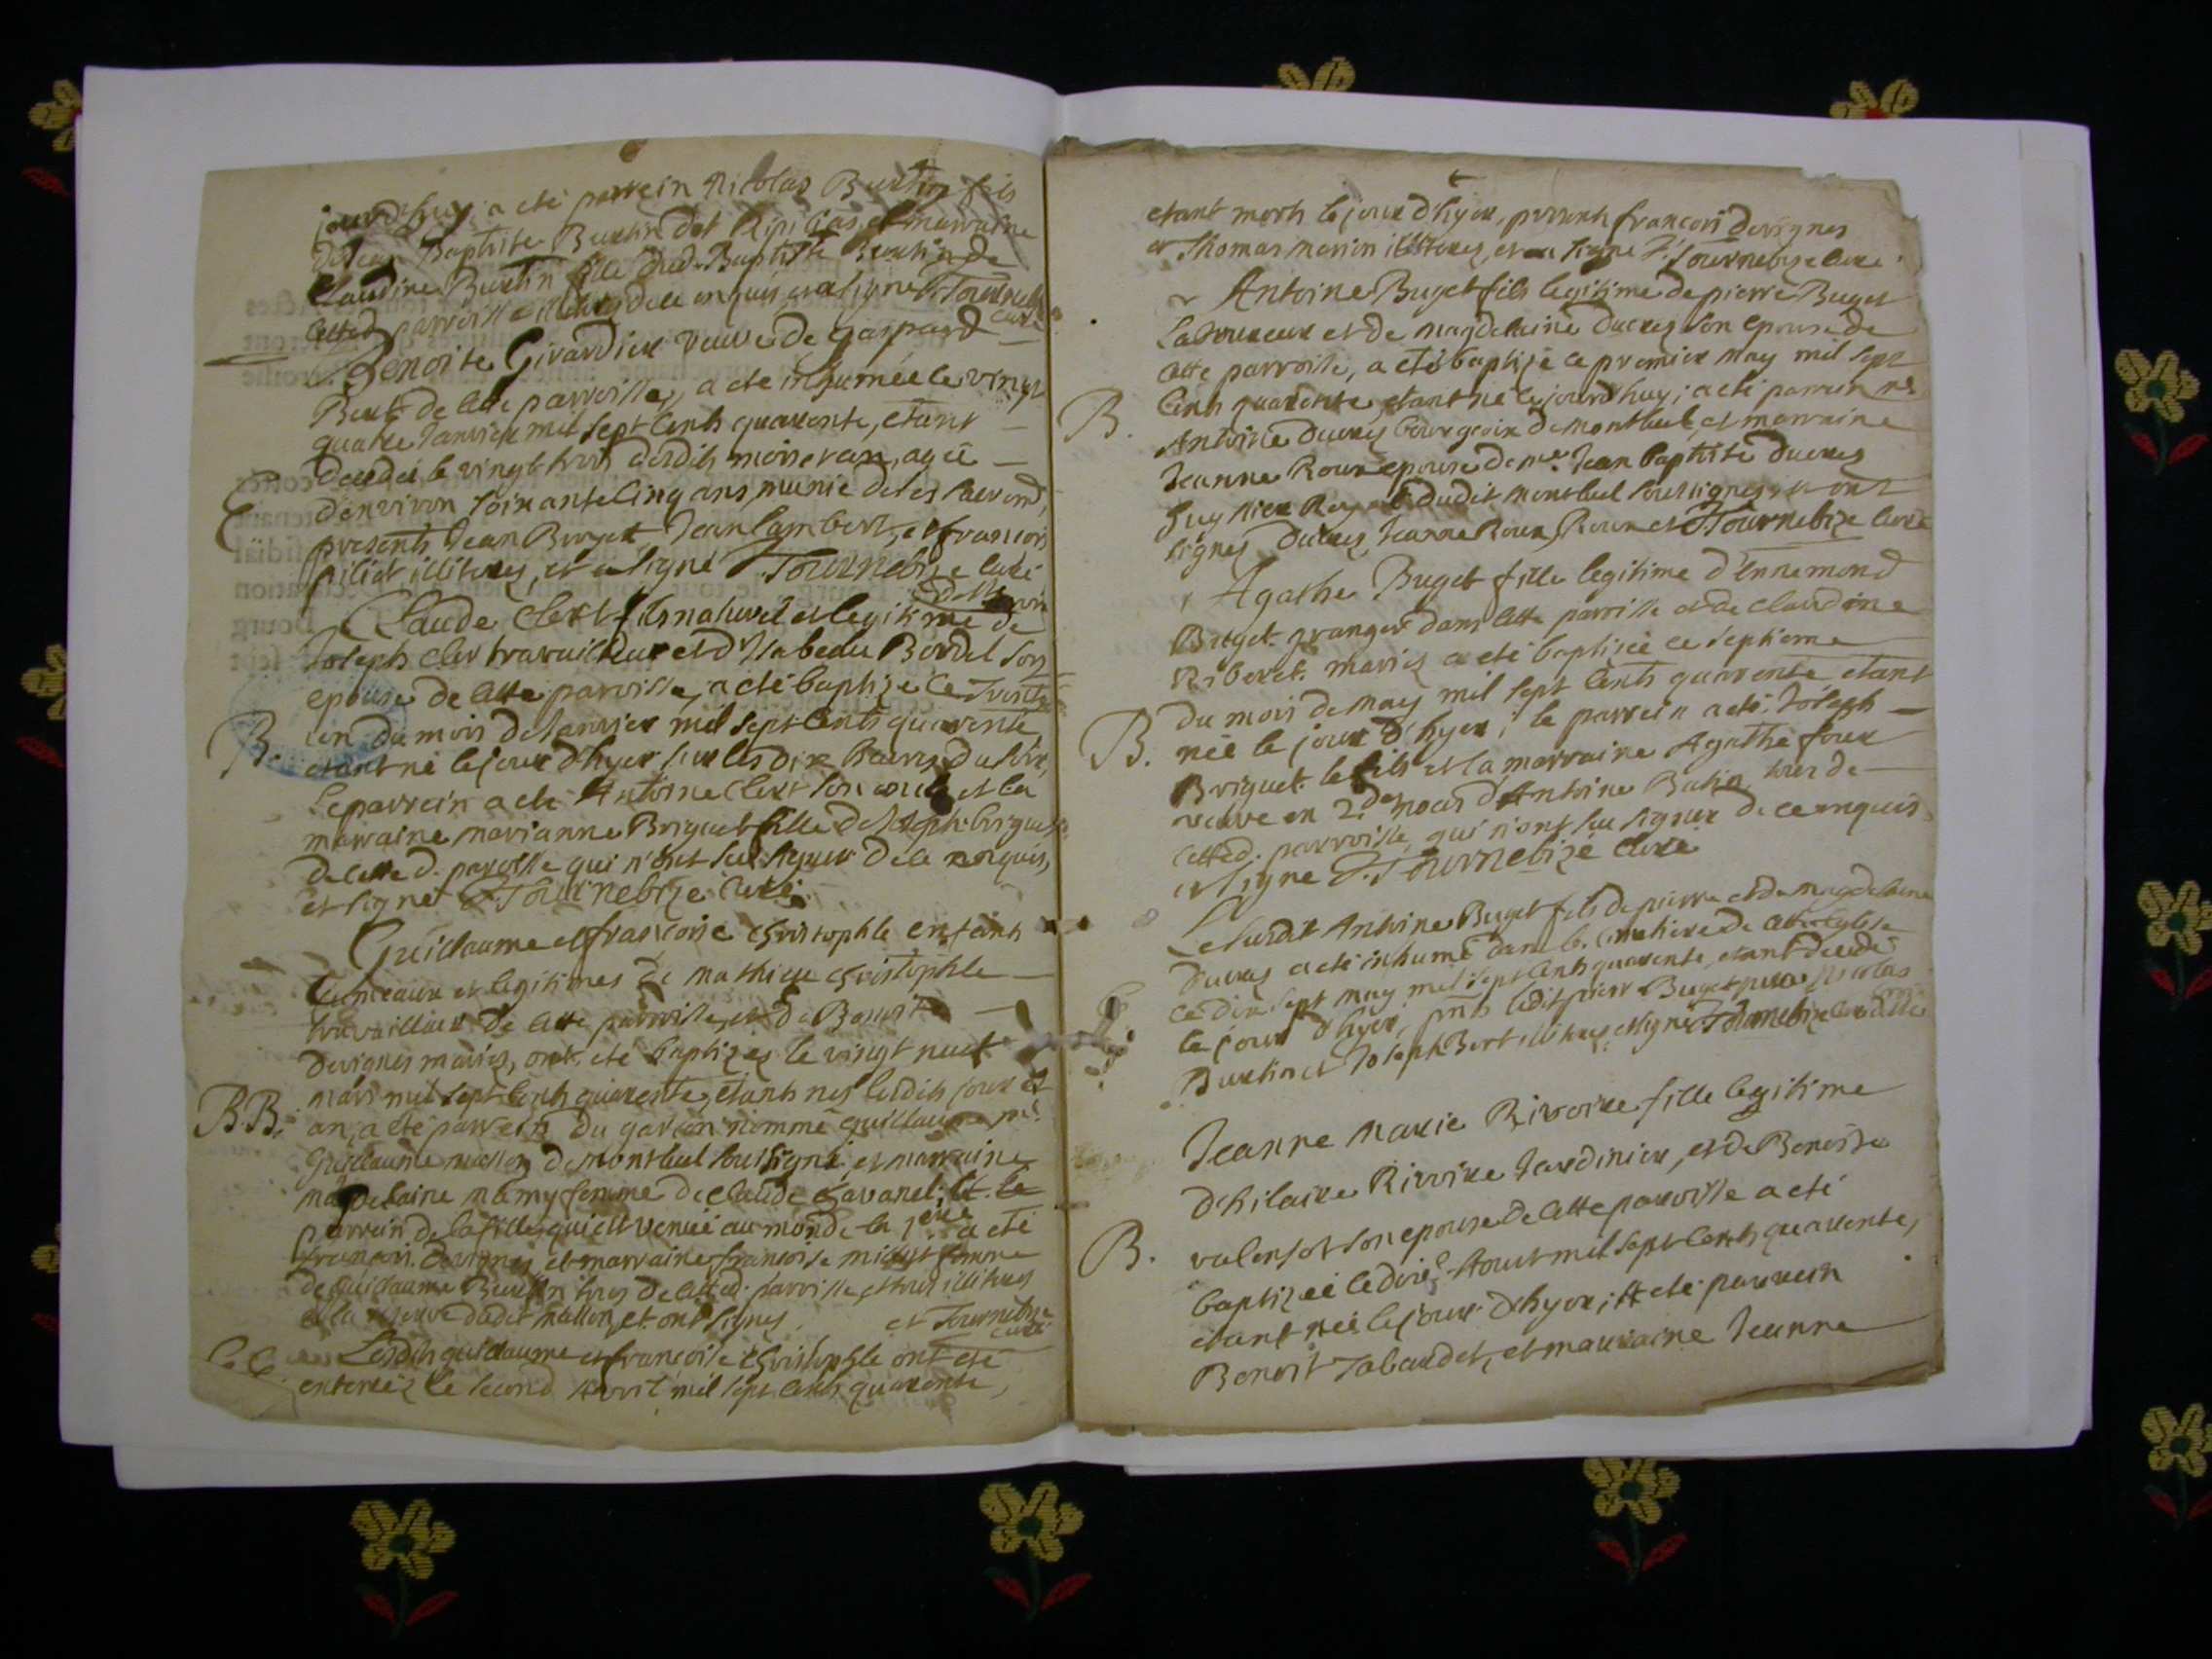 jourdhuy; a eté parrein Nicolas Burtin fils
de Jean Baptiste Burtin dot et marraine
Claudine Burtin fille dud. Baptiste Burtin de
cetted. parroisse illiterés de ce enquis et a signé F. Tournebize
curé
Benoite Girardier veuve de Gaspard
Bert de cette parroisse, a eté inhumée le vingt
quatre Janvier mil sept cents quarente, etant
decedée le vingt trois desdits mois et an, agée
d'environ soixante cinq ans, munie de ses sacremts,
presents Jean Buget, Jean Lambert, et francois
piliet illiterés, et a signé F. Tournebize curé
Claude Clert fils naturel et legitime de
Joseph Cler travailleur et d'Isabeau Bordel son
epouse de cette parroisse, a eté baptizé le trente
B. un du mois de Janvier mil sept cents quarente,
etant né le jour d'hyer sur les dix heures du soir,
le parrein a eté Antoine Clert son oncle et la
marraine marianne Briquet fille de Joseph briquet
de cette d. parroisse qui n'ont sçu signer de ce enquis,
et signé F. Tournebize curé.
Guillaume et francoise Christophle enfants
jumeaux et legitimes de mathieu Christophle
travailleur de cette parroisse, et de Benoite
Devignes mariés, ont eté baptizés le vingt neuf
mars mil sept cents quarente, etants nés lesdits jour et
B.B. an, a eté parrein du garçon nommé guillaume mr.
Guillaume masson de montluel soussigné et marraine
magdelaine mamy femme de claude Chavanel; et le
parrein de la fille qui est venue au monde la 1ere a eté
francois Devignes et marraine francoise miciet femme
de Guillaume Burtin tous de cetted. parroisse, et tous illiterés
a la reserve dudit masson, et ont signés. et Tournebize
curé
Lesdits guillaume et francoise Christophle ont eté
enterréz le second Avril mil sept cents quarente,
etant morts le jour d'hyer, presents francois devignes
et Thomas marion illiterés, et a signé F. Tournebize curé.
Antoine Buget fils legitime de pierre Buget
Laboureur et de magdelaine ducres son epouse de
cette parroisse, a eté baptizé ce premier may mil sept
B. cents quarente etant né cejourdhuy; a eté parrein mr.
Antoine ducres bourgeois de montluel, et marraine
Jeanne Roux epouse de me. Jean baptiste ducres
huyssier Royal dudit montluel soussignes, et ont
signés ducres, Jeanne Roux, Roux et F. Tournebize curé
Agathe Buget fille legitime d'Ennemond
Buget granger dans cette parroisse et de claudine
Riberet mariés a eté baptisée ce septieme
du mois de may mil sept cents quarente etant
B. née le jour d'hyer; le parrein a eté Joseph
Briquet le fils et la marraine Agathe four
veuve en 2des noces d'Antoine Butin tous de
cetted. parroisse, qui n'ont sçu signer de ce enquis
et signé F. Tournebize curé
Le susdit Antoine Buget fils de pierre et de magdelaine
ducres a eté inhumé dans le cimetiere de cette Eglise
ce dix sept may mil sept cents quarente, etant decedé
le jour d'hyer, pnts ledit pierre Buget pere, Nicolas
Burtin et Joseph Bert illiterés, et signé F. Tournebize curé
Jeanne Marie Rivoire fille legitime
d'hilaire Rivoire Jardinier, et de Benoite
valensot son epouse de cette parroisse a eté
B. baptizée le dixe. Aout mil sept cents quarente,
etant née le jour d'hyer; et a eté parrein
Benoit Tabardet, et marraine Jeanne